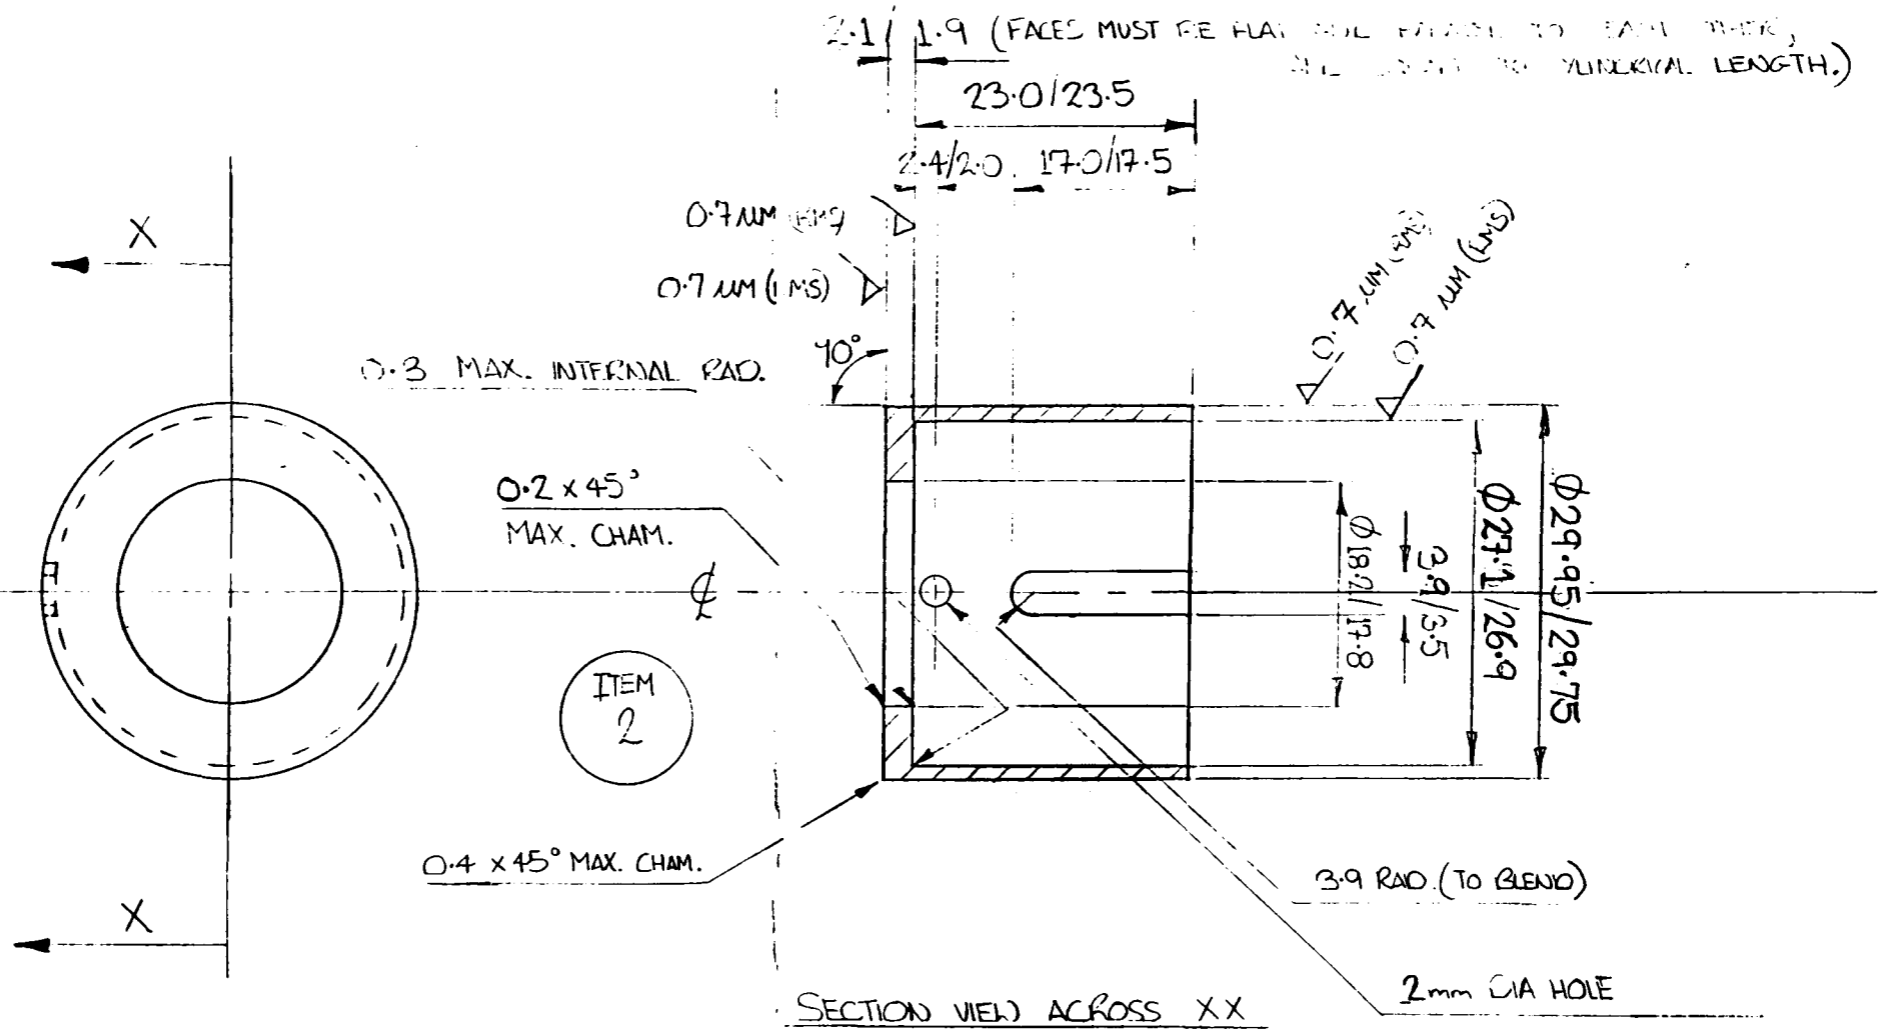 2.1/1.9 (FACES MUST BE FLAT TO EACH
TO LENGTH.)
23.0/23.5
2.4/2.0 17.0/17.5
X
0.7 µM (RMS)
0.7 µM (RMS)
0.7 µM (RMS)
0.7 µM (RMS)
90°
0.3 MAX. INTERNAL RAD.
0.2 x 45°
MAX. CHAM.
℄
ITEM
2
Ø18.2/17.8
3.9/3.5
Ø27.1/26.9
Ø29.95/29.75
0.4 x 45° MAX. CHAM.
3.9 RAD. (TO BLEND)
X
2mm DIA HOLE
SECTION VIEW ACROSS XX